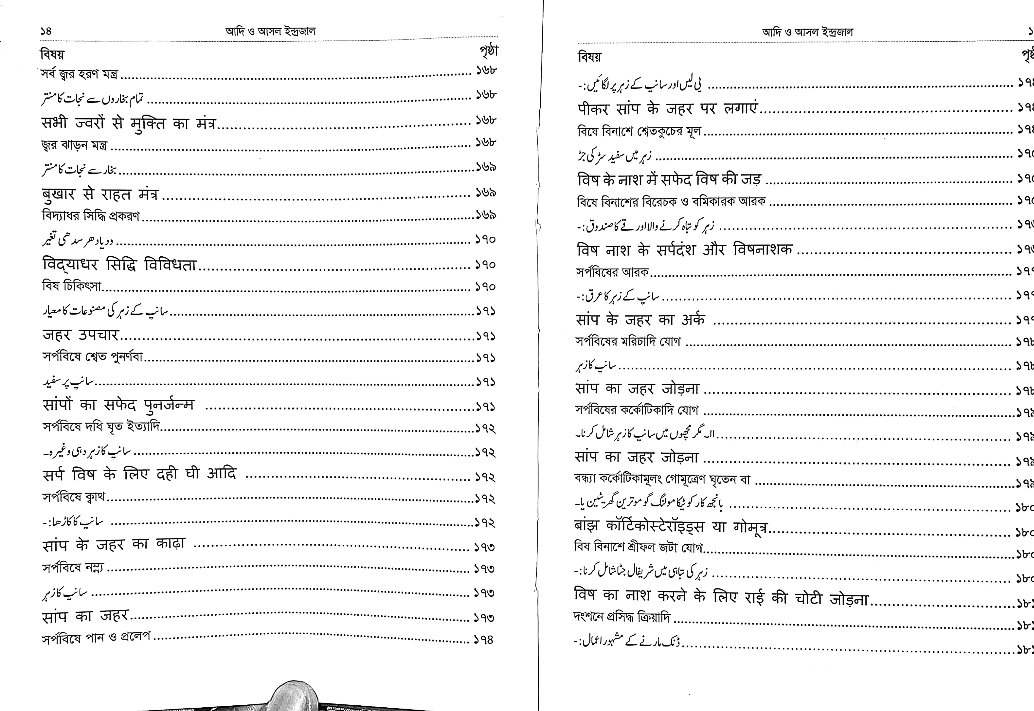 ১৪ আদি ও আসল ইন্দ্রজাল
বিষয় পৃষ্ঠা
সর্ব জ্বর হরণ মন্ত্র ১৬৮
تمام بخاروں سے نجات کا منتر ১৬৮
सभी ज्वरों से मुक्ति का मंत्र ১৬৮
জ্বর ঝাড়ন মন্ত্র ১৬৮
بخار سے نجات کا منتر ১৬৯
बुखार से राहत मंत्र ১৬৯
বিদ্যাধর সিদ্ধি প্রকরণ ১৬৯
ودیادھر سدھی تغیر ১৭০
विद्याधर सिद्धि विविधता ১৭০
বিষ চিকিৎসা ১৭০
سانپ کے زہر کی مصنوعات کا معیار ১৭১
जहर उपचार ১৭১
সর্পবিষে শ্বেত পুনর্ণবা ১৭১
سانپ پر سفید ১৭১
सांपों का सफेद पुनर्जन्म ১৭১
সর্পবিষে দধি ঘৃত ইত্যাদি ১৭২
سانپ کا زہر دہی وغیرہ۔ ১৭২
सर्प विष के लिए दही घी आदि ১৭২
সর্পবিষে ক্বাথ ১৭২
سانپ کا کاڑھا:- ১৭২
सांप के जहर का काढ़ा ১৭৩
সর্পবিষে নস্য ১৭৩
سانپ کا زہر ১৭৩
सांप का जहर ১৭৩
সর্পবিষে পান ও প্রলেপ ১৭৪
আদি ও আসল ইন্দ্রজাল
বিষয়
پی لیں اور سانپ کے زہر پر لگائیں:-
पीकर सांप के जहर पर लगाएं
বিষে বিনাশে শ্বেতকুচের মূল
زہر میں سفید سڑ کی جڑ
विष के नाश में सफेद विष की जड़
বিষে বিনাশের বিরেচক ও বমিকারক আরক
زہر کو تباہ کرنے والا اور قے کا صندوق:-
विष नाश के सर्पदंश और विषनाशक
সর্পবিষের আরক
سانپ کے زہر کا عرق:-
सांप के जहर का अर्क
সর্পবিষের মরিচাদি যোগ
سانپ کا زہر
सांप का जहर जोड़ना
সর্পবিষের কর্কোটিকাদি যোগ
اا۔ مگر مچھوں میں سانپ کا زہر شامل کرنا۔
सांप का जहर जोड़ना
বন্ধ্যা কর্কোটিকামূলং গোমূত্রেণ ঘৃতেন বা
بانجھ کار کوٹیکا مولنگ گوموترین گھریٹین یا۔
बांझ कॉर्टिकोस्टेरॉइड्स या गोमूत्र
বিষ বিনাশে শ্রীফল জটা যোগ
زہر کی تباہی میں شریفال جٹا شامل کرنا:-
विष का नाश करने के लिए राई की चोटी जोड़ना
দংশনে প্রসিদ্ধ ক্রিয়াদি
ڈنک مارنے کے مشہور اعمال:-